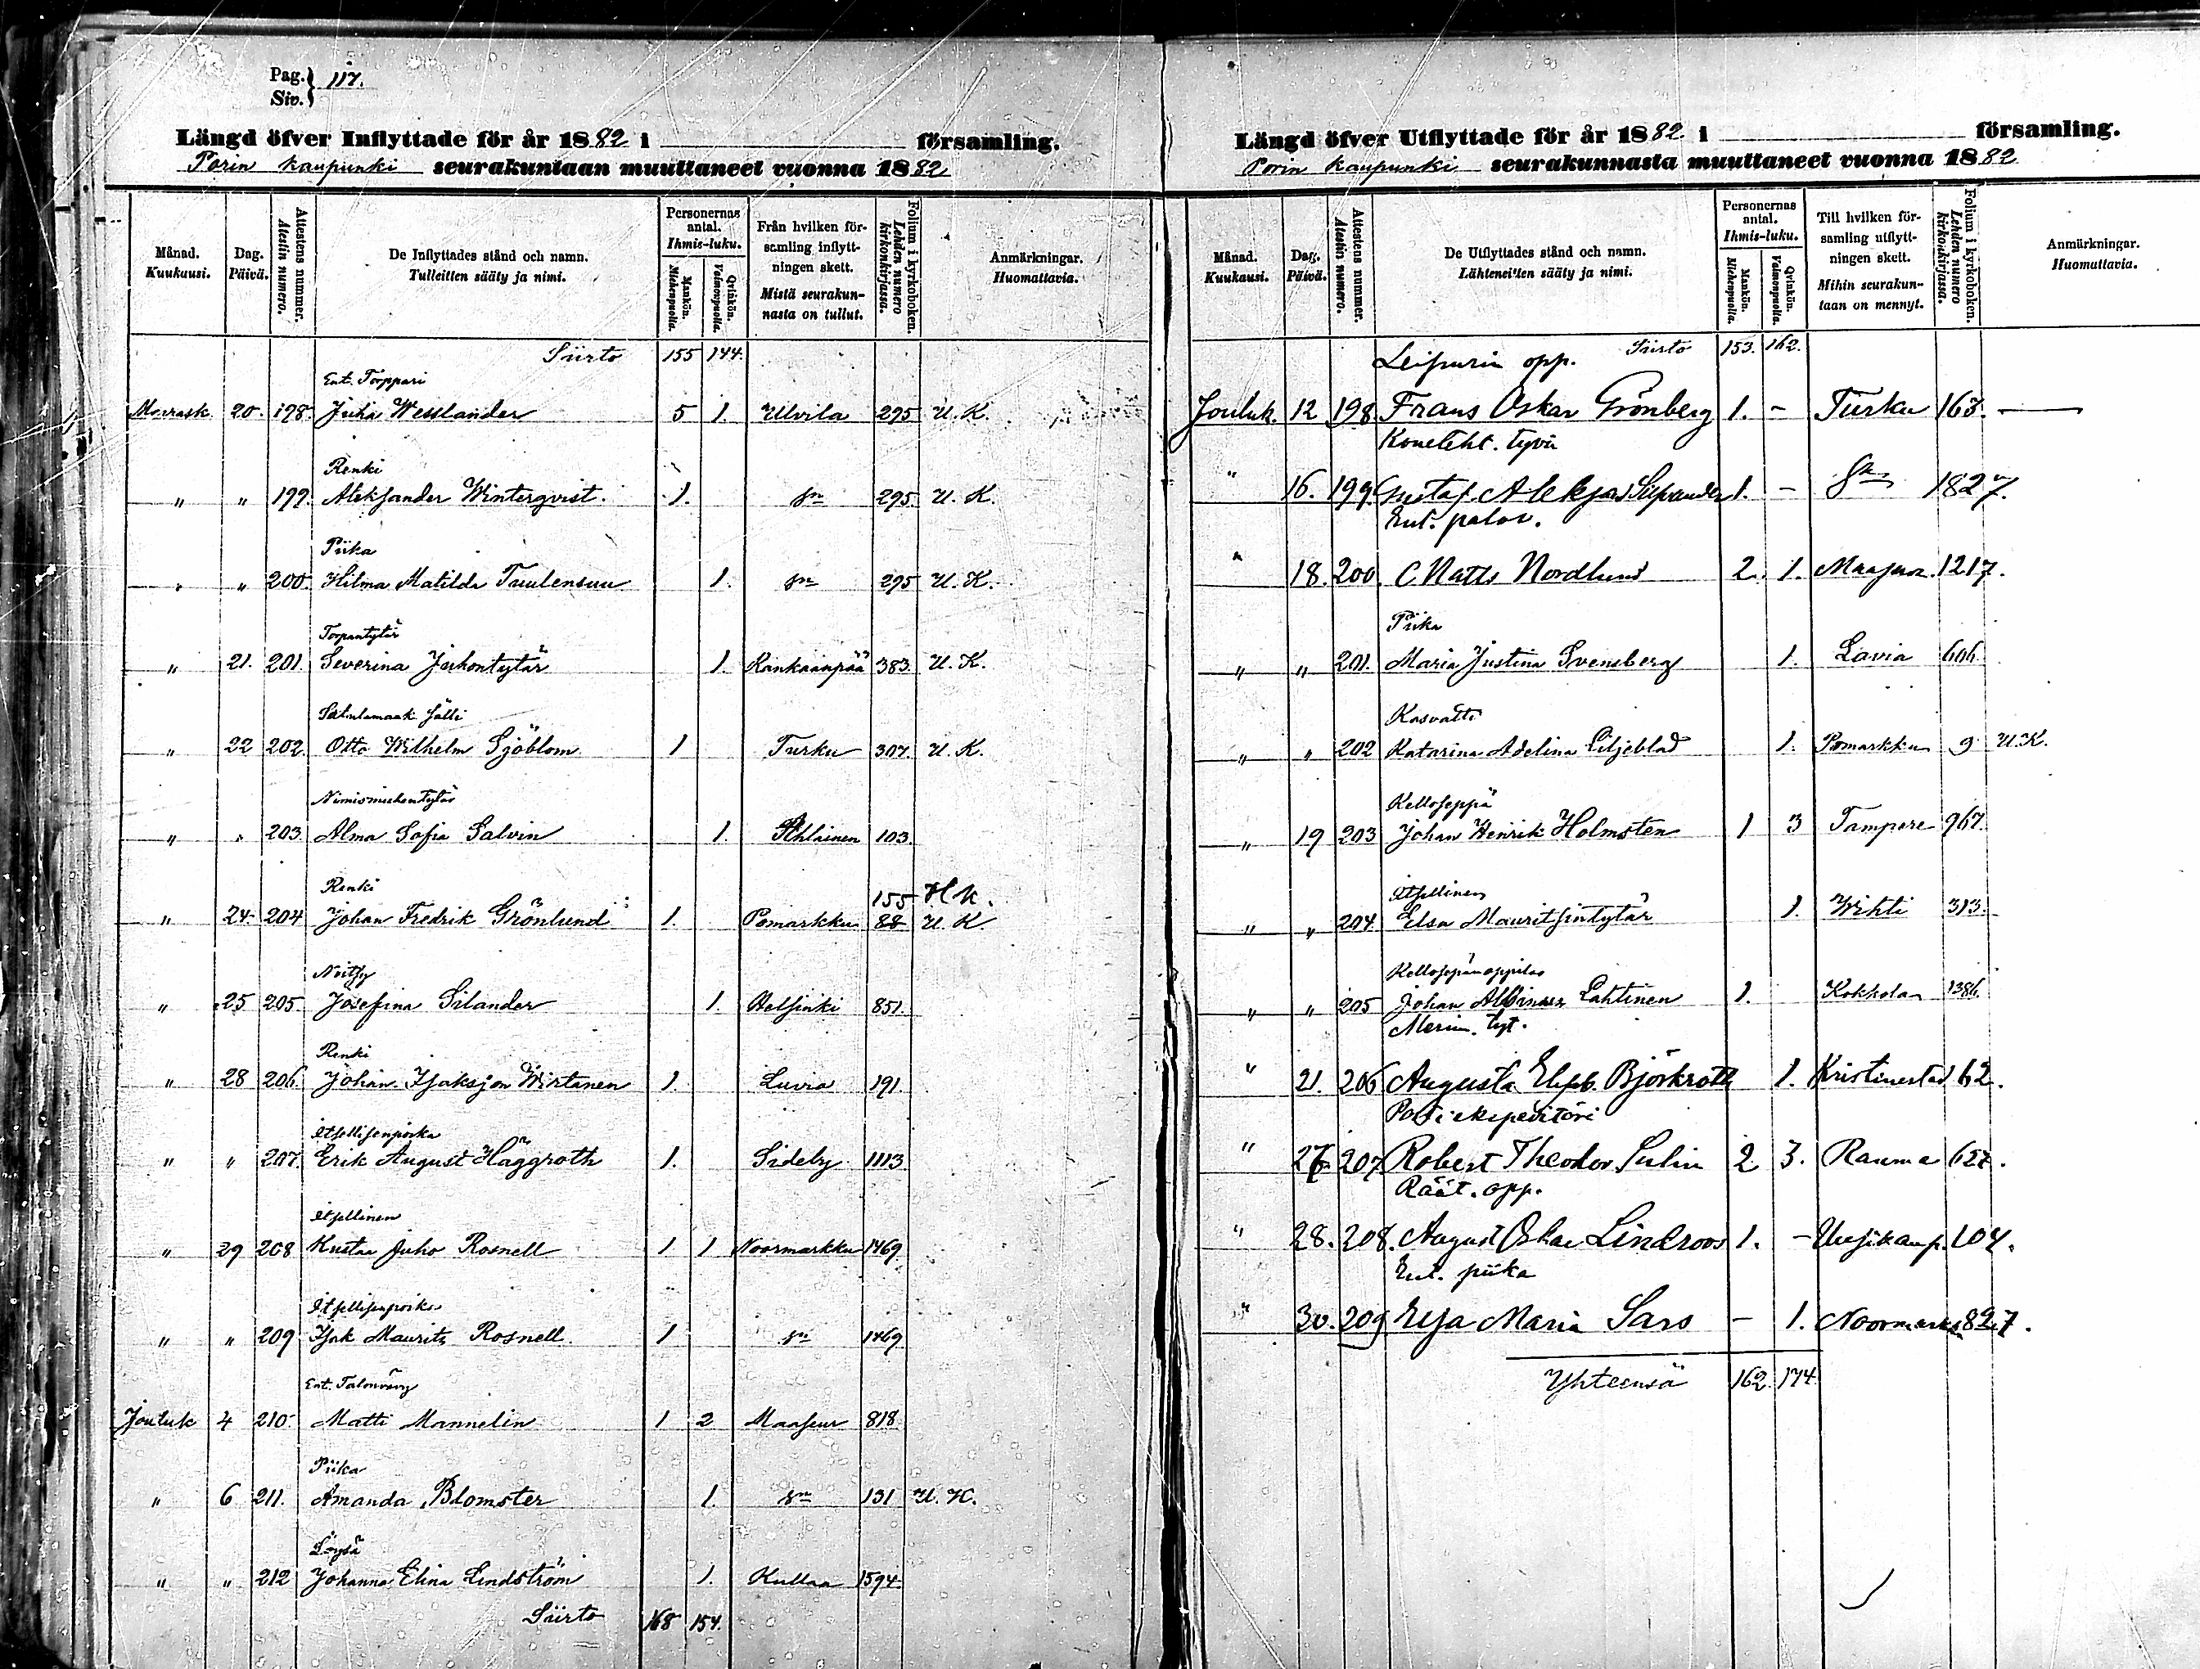 Pag. Siv. } 117.
Längd öfver Inflyttade för år 1882 i församling.
Porin kaupunki seurakuntaan muuttaneet vuonna 1882
Månad. Kuukausi. Dag. Päivä. Attestens nummer. Atestin numero. De Inflyttades stånd och namn. Tulleitten sääty ja nimi. Personernas antal. Ihmis-luku. Mankön. Miehenpuolia. Qvinkön. Vaimonpuolia. Från hvilken församling inflyttningen skett. Mistä seurakunnasta on tullut. Folium i kyrkoboken. Lehden numero kirkonkirjassa. Anmärkningar. Huomattavia.
Siirto 155 144.
Ent. Torppari
Marrask. 20. 198. Juha Wesslander 5 1. Ulvila 295 U. K.
Renki
" " 199. Aleksander Winterqvist. 1. sn 295. U. K.
Piika
" " 200. Hilma Matilda Tuulensuu 1. sn 295 U. K.
Torpantytär
" 21. 201. Severina Juhontytär 1. Kankaanpää 383. U. K.
Sälli
" 22 202. Otto Wilhelm Sjöblom 1 Turku 307. U. K.
Nimismiehentytär
" " 203. Alma Sofia Salvin 1. Ahlainen 103.
Renki 155 H k.
" 24. 204 Johan Fredrik Grönlund 1. Pomarkku 88 U. K.
Neitsy
" 25 205. Josefina Silander 1. Helsinki 851.
Renki
" 28 206. Johan Isaksson Wirtanen 1. Luvia 191.
Itsellisenpoika
" " 207. Erik August Häggroth 1. Sideby 1113
Itsellinen
" 29 208 Kustaa Juho Rosnell 1 1 Noormarkku 1469
Itsellisenpoika
" " 209 Isak Maurits Rosnell. 1 sn 1469
Ent. Talonvävy
Jouluk 4 210. Matti Mannelin 1 2 Maaseur 818.
Piika
" 6 211. Amanda Blomster 1. sn 131 U. K.
Löysä
" " 212 Johanna Elina Lindström 1. Kullaa 1594.
Siirto 168 154.
Längd öfver Utflyttade för år 1882. i församling.
Porin kaupunki seurakunnasta muuttaneet vuonna 1882
Månad. Kuukausi. Dag. Päivä. Attestens nummer. Atestin numero. De Utflyttades stånd och namn. Lähteneitten sääty ja nimi. Personernas antal. Ihmis-luku. Mankön. Miehenpuolia. Qvinkön. Vaimonpuolia. Till hvilken församling utflyttningen skett. Mihin seurakuntaan on mennyt. Folium i kyrkoboken. Lehden numero kirkonkirjassa. Anmärkningar. Huomattavia.
Leipurin opp. Siirto 153. 162.
Jouluk. 12 198. Frans Oskar Grönberg 1. - Turku 163. —
Koneteht. työn
" 16. 199. Gustaf Aleksand 1. - sn 1827.
Ent. palov.
" 18. 200. C Matts Nordlund 2. 1. Maaseur. 1217.
Piika
" " 201. Maria Justina Svensberg 1. Lavia 606.
Kasvatti
" " 202 Katarina Adelina Liljeblad 1. Pomarkku 9 U. K.
Kelloseppä
" 19 203 Johan Henrik Holmsten 1 3 Tampere 967.
Itsellinen
" " 204. Elsa Mauritsintytär 1. Wihti 313.
Kellosepänoppilas
" " 205 Johan Albinus Lahtinen 1. Kokkolan 1386.
Merim. tyt.
" 21. 206 Augusta Elisab. Björkroth 1. Kristinestad 62.
Posti ekspeditöri
" 27. 207 Robert Theodor Sulin 2. 3. Rauma 627.
Räät. opp.
" 28. 208. August Oskar Lindroos 1. - Uusikaup. 104.
Ent. piika
" 30. 209 Eva Maria Sars - 1. Noormarkku 827.
Yhteensä 162. 174